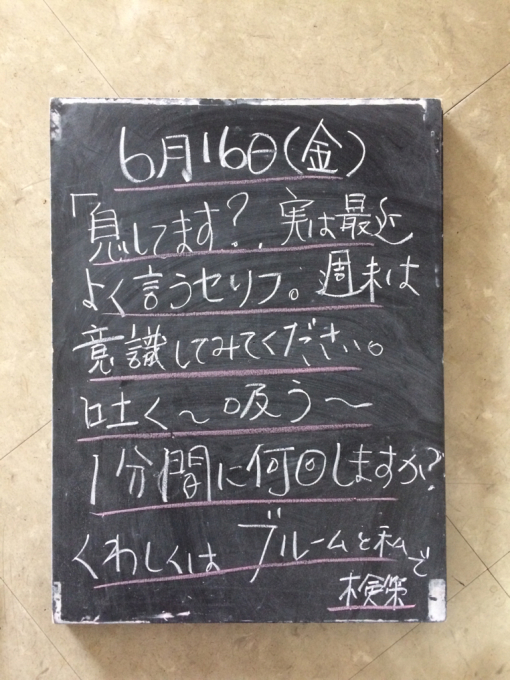 6月16日(金)
「息してます?」実は最近
よく言うセリフ。週末は
意識してみてください。
吐く〜吸う〜
1分間に何回しますか?
くわしくは ブルームと私で
検索